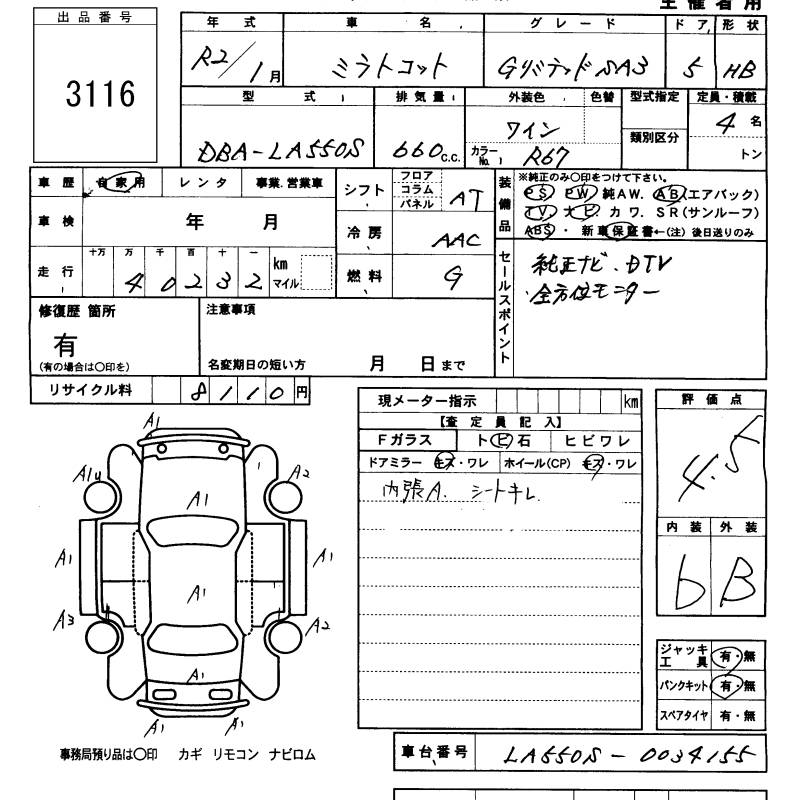 主催者用
出品番号
3116
年式 車名 グレード ドア 形状
R2/1月 ミラトコット GリミテッドSA3 5 HB
型式 排気量 外装色 色替 型式指定 定員・積載
類別区分
DBA-LA550S 660 c.c. ワイン 4名
カラーNo. R67 トン
車歴 自家用 レンタ 事業.営業車
車検 年 月
十万 万 千 百 十 一
走行 40232 km マイル
シフト フロア コラム パネル AT
冷房 AAC
燃料 G
装備品
※純正のみ〇印をつけて下さい。
PS PW 純AW. AB(エアバック)
TV. ナビ. カワ. SR(サンルーフ)
ABS・ 新車保証書←(注)後日送りのみ
セールスポイント
純正ナビ.DTV
全方位モニター
修復歴 箇所
有
(有の場合は〇印を)
注意事項
名変期日の短い方 月 日まで
リサイクル料 8110円
現メーター指示 km
【査定員記入】
Fガラス トビ石 ヒビワレ
ドアミラー キズ・ワレ ホイール(CP) キズ・ワレ
内張A. シートキレ
評価点
4.5
内装 外装
b B
ジャッキ工具 有・無
パンクキット 有・無
スペアタイヤ 有・無
A1
A1u A1 A2
A1 A1 A1
A3 A2
A1
A1 A1
事務局預り品は〇印 カギ リモコン ナビロム
車台番号 LA550S-0034155